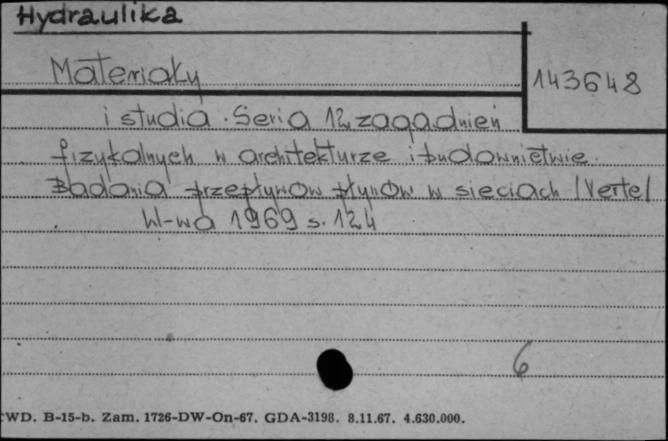 Hydraulika
Materiały
143648
i studia. Seria 12 zagadnień
fizykalnych w architekturze i budownictwie.
Badania przepływów płynów w sieciach /Verte/
W-wa 1969 s. 124
6
WD. B-15-b. Zam. 1726-DW-On-67. GDA-3198. 8.11.67. 4.630.000.